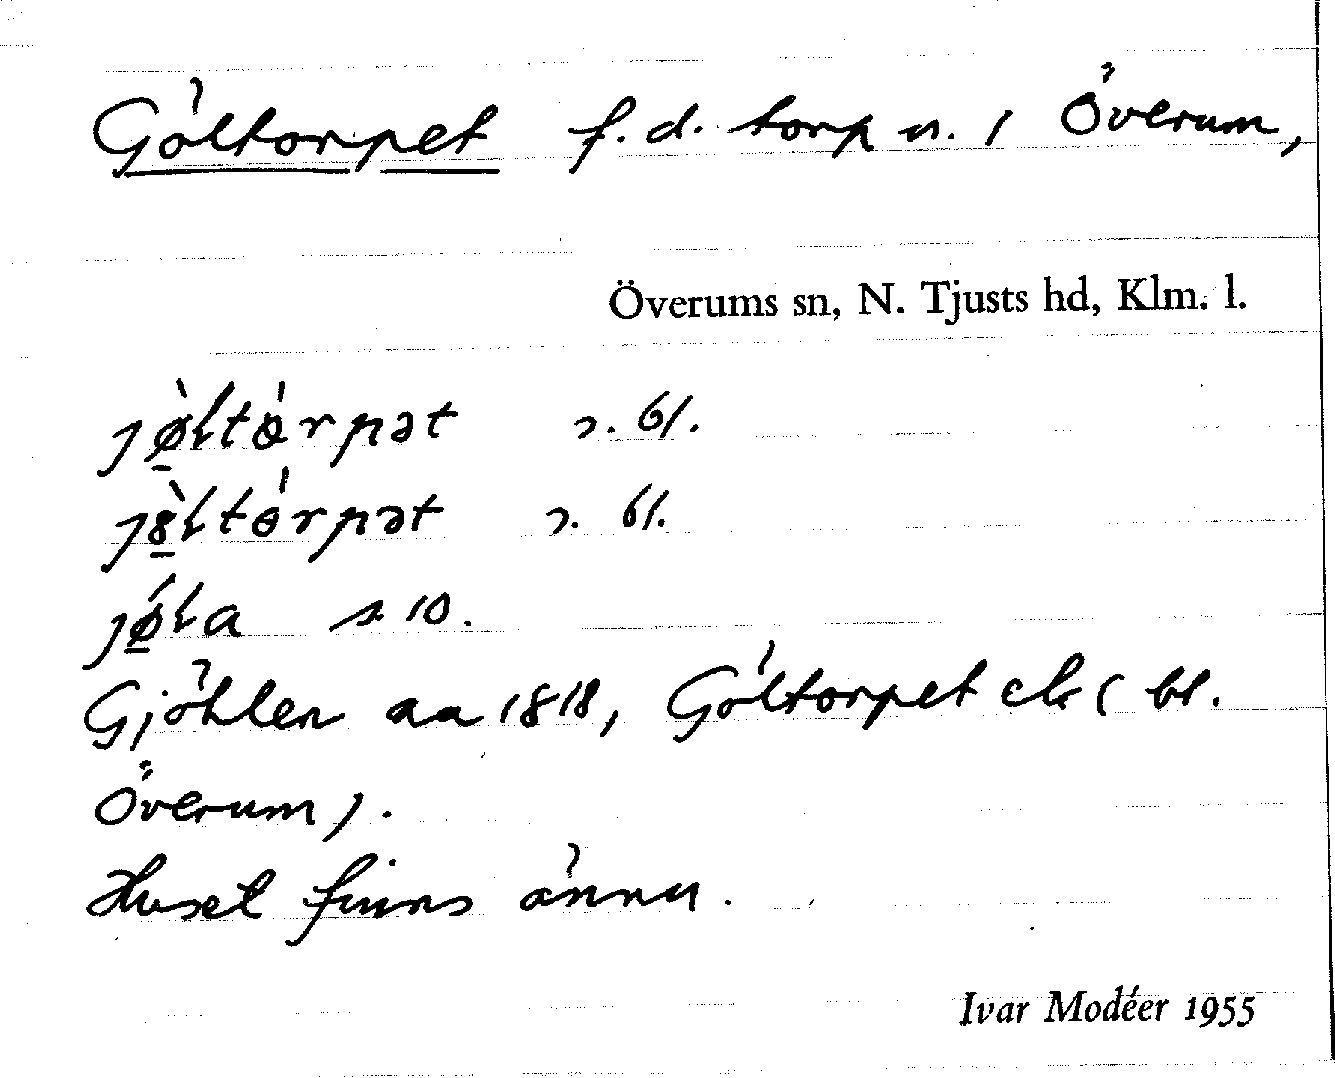 Göltorpet f.d. torp u. / Överum,
Överums sn, N. Tjusts hd, Klm. l.
jø̀ltȯ́rpət s. 61.
j8̀ltȯ́rpət s. 61.
jǿla s 10.
Gjöhlen aa 1818, Göltorpet ek ( bl.
Överum ).
Huset finns ännu.
Ivar Modéer 1955